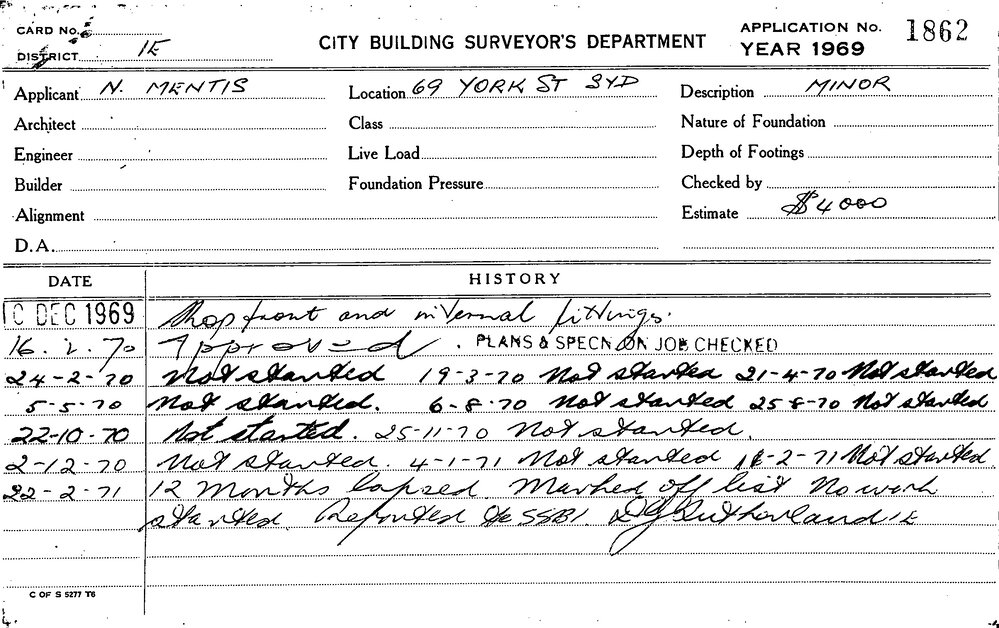 CARD No.
DISTRICT 1E
CITY BUILDING SURVEYOR'S DEPARTMENT
APPLICATION No. 1862
YEAR 1969
Applicant N. MENTIS Location 69 YORK ST SYD Description MINOR
Architect Class Nature of Foundation
Engineer Live Load Depth of Footings
Builder Foundation Pressure Checked by
Alignment Estimate $4000
D.A.
DATE HISTORY
DEC 1969 Shop front and internal fittings.
16.2.70 Approved. PLANS & SPECN ON JOB CHECKED
24-2-70 Not started 19-3-70 Not started 21-4-70 Not started
5-5-70 Not started. 6-8-70 Not started 25 8-70 Not started
22-10-70 Not started. 25-11-70 Not started.
2-12-70 Not started. 4-1-71 Not started -2-71 Not started.
22-2-71 12 Months lapsed. Marked off list No work
started. Reported to SSBI Sutherland 1E
C OF S 5277 T6